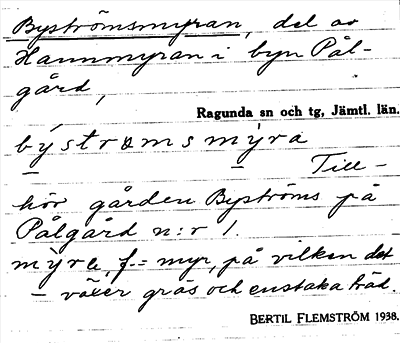 Byströmsmyran, del av
Hammyran i byn Pål-
gård,
Ragunda sn och tg, Jämtl. län.
býstrømsmỳra
Till-
hör gården Byströms på
Pålgård n:r 1.
mỳra, f. = myr, på vilken det
växer gräs och enstaka träd.
BERTIL FLEMSTRÖM 1938.